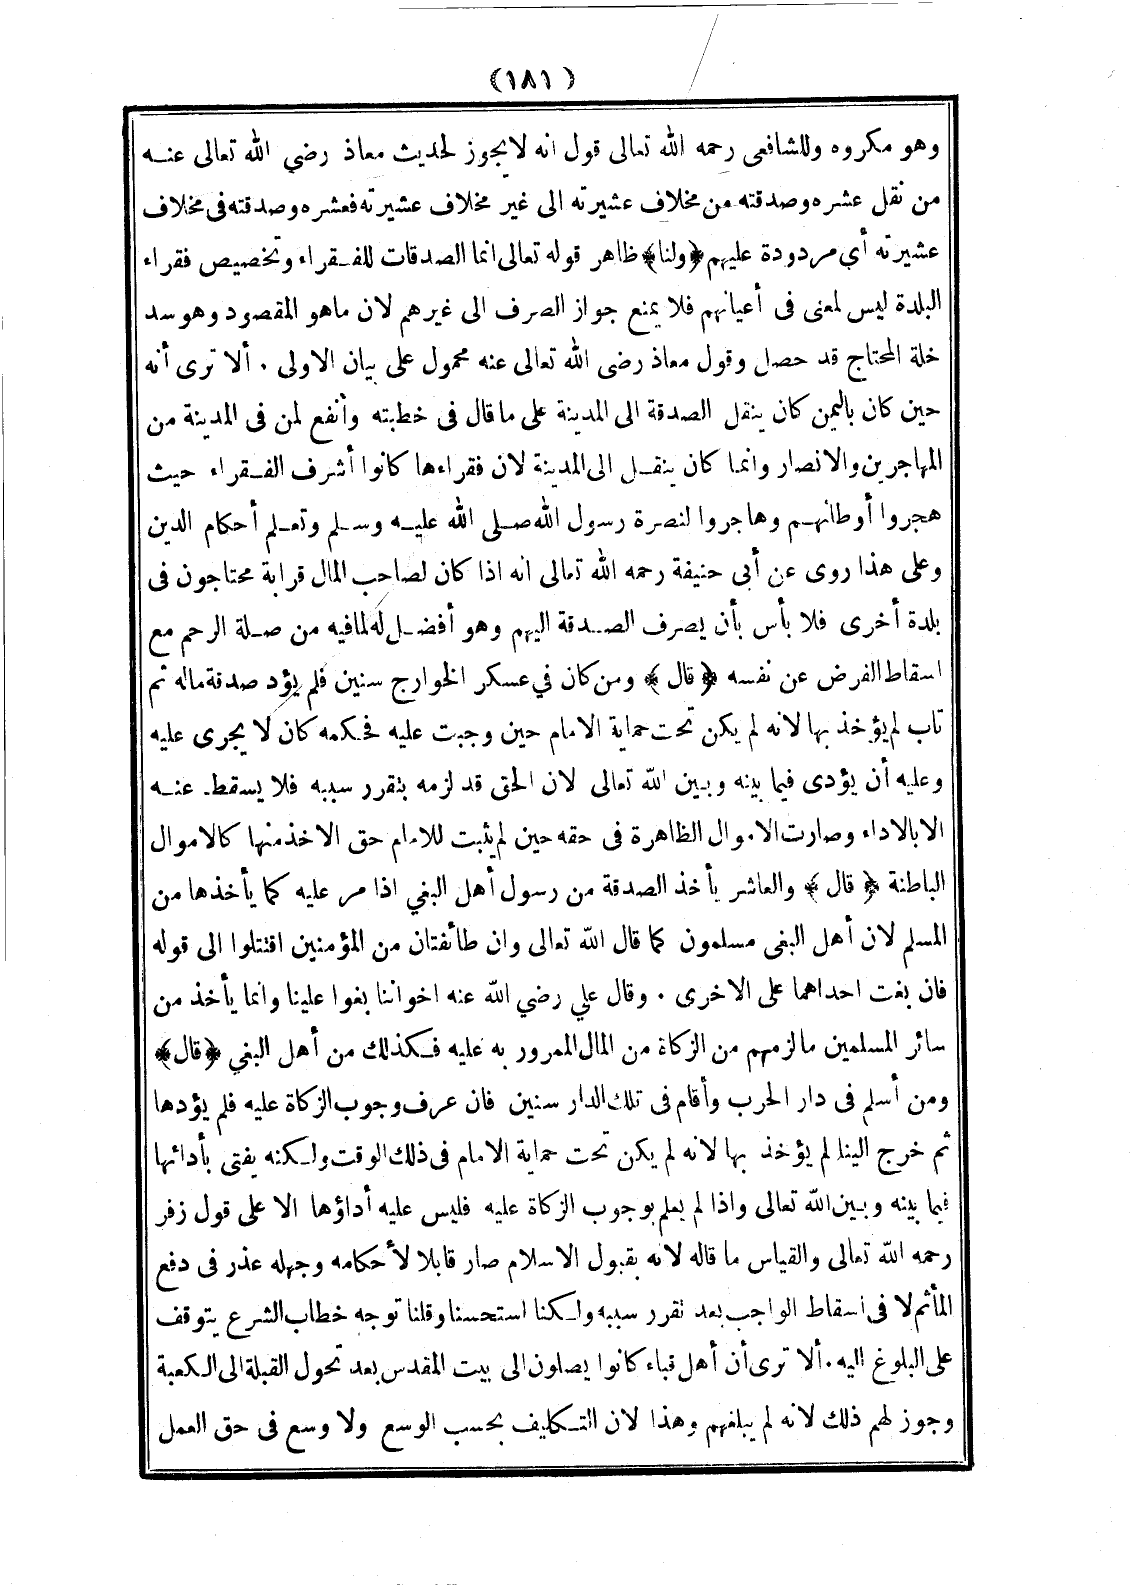 (١٨١)
وهو مكروه وللشافعى رحمه الله تعالى قول انه لا يجوز لحديث معاذ رضي الله تعالى عنه
من نقل عشره وصدقته من مخلاف عشيرته الى غير مخلاف عشيرته فعشره وصدقته فى مخلاف
عشيرته أي مردودة عليهم ﴿ولنا﴾ ظاهر قوله تعالى انما الصدقات للفقراء وتخصيص فقراء
البلدة ليس لمعنى فى أعيانهم فلا يمنع جواز الصرف الى غيرهم لان ماهو المقصود وهو سد
خلة المحتاج قد حصل وقول معاذ رضى الله تعالى عنه محمول على بيان الاولى . ألا ترى أنه
حين كان باليمن كان ينقل الصدقة الى المدينة على ما قال فى خطبته وأنفع لمن فى المدينة من
المهاجرين والانصار وانما كان ينقل الى المدينة لان فقراءها كانوا أشرف الفقراء حيث
هجروا أوطانهم وهاجروا لنصرة رسول الله صلى الله عليه وسلم وتعلم أحكام الدين
وعلى هذا روى عن أبى حنيفة رحمه الله تعالى انه اذا كان لصاحب المال قرابة محتاجون فى
بلدة أخرى فلا بأس بأن يصرف الصدقة اليهم وهو أفضل له لما فيه من صلة الرحم مع
اسقاط الفرض عن نفسه ﴿ قال ﴾ ومن كان في عسكر الخوارج سنين فلم يؤد صدقة ماله ثم
تاب لم يؤخذ بها لانه لم يكن تحت حماية الامام حين وجبت عليه فحكمه كان لا يجرى عليه
وعليه أن يؤدى فيما بينه وبين الله تعالى لان الحق قد لزمه بتقرر سببه فلا يسقط عنه
الا بالاداء وصارت الاموال الظاهرة فى حقه حين لم يثبت للامام حق الاخذ منها كالاموال
الباطنة ﴿ قال ﴾ والعاشر يأخذ الصدقة من رسول أهل البغي اذا مر عليه كما يأخذها من
المسلم لان أهل البغى مسلمون كما قال الله تعالى وان طائفتان من المؤمنين اقتتلوا الى قوله
فان بغت احداهما على الاخرى . وقال علي رضي الله عنه اخواننا بغوا علينا وانما يأخذ من
سائر المسلمين ما لزمهم من الزكاة من المال الممرور به عليه فكذلك من أهل البغي ﴿قال﴾
ومن أسلم فى دار الحرب وأقام فى تلك الدار سنين فان عرف وجوب الزكاة عليه فلم يؤدها
ثم خرج الينا لم يؤخذ بها لانه لم يكن تحت حماية الامام فى ذلك الوقت ولكنه يفتى بأدائها
فيما بينه وبين الله تعالى واذا لم يعلم بوجوب الزكاة عليه فليس عليه أداؤها الا على قول زفر
رحمه الله تعالى والقياس ما قاله لانه بقبول الاسلام صار قابلا لأحكامه وجهله عذر فى دفع
المأثم لا فى اسقاط الواجب بعد تقرر سببه ولكنا استحسنا وقلنا توجه خطاب الشرع يتوقف
على البلوغ اليه . ألا ترى أن أهل قباء كانوا يصلون الى بيت المقدس بعد تحول القبلة الى الكعبة
وجوز لهم ذلك لانه لم يبلغهم وهذا لان التكليف بحسب الوسع ولا وسع فى حق العمل